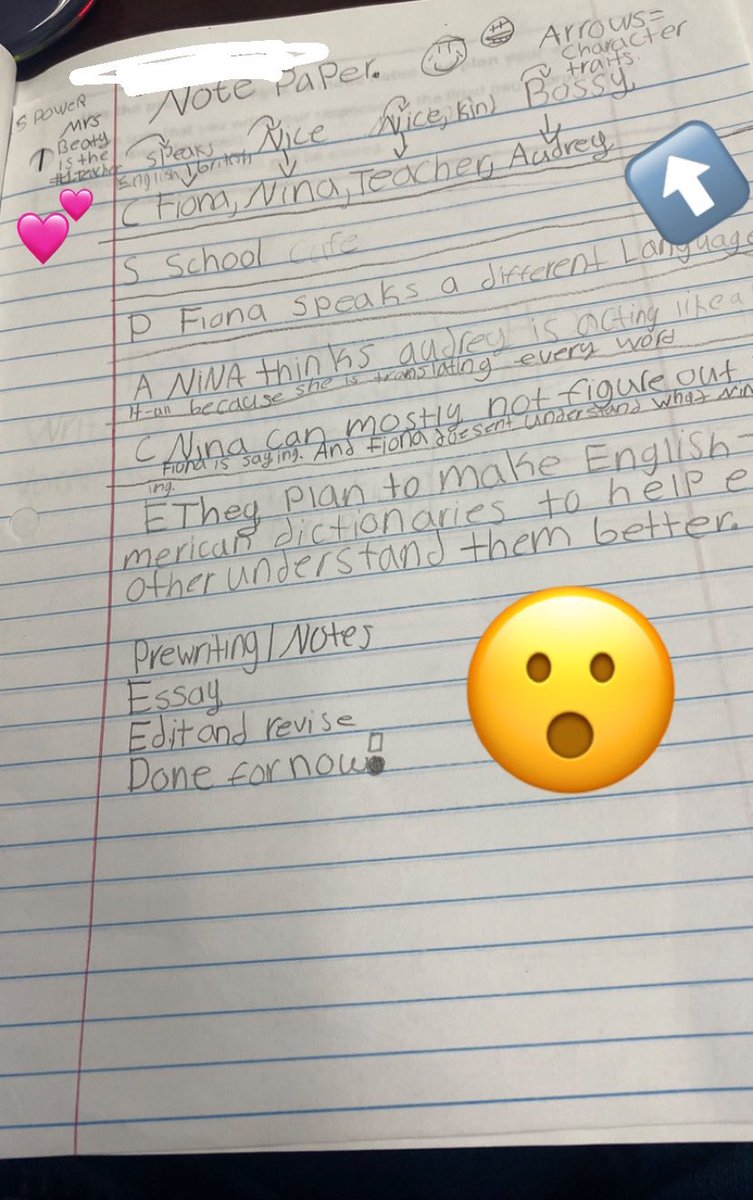 Note Paper.
Arrows=
character
traits.
S POWER
Mrs
Beaty
is the
#1 teacher
speaks
English British
Nice
Nice, kind
Bossy
C Fiona, Nina, Teacher, Audrey
S School Cafe
P Fiona speaks a different Language
A NiNA thinks audrey is acting like a
because she is translating every word
C Nina can mostly not figure out
Fiona is saying. And Fiona doesent understand what Nin
ing.
E They plan to make English-
merican dictionaries to help e
other understand them better.
Prewriting/Notes
Essay
Edit and revise
Done for now!